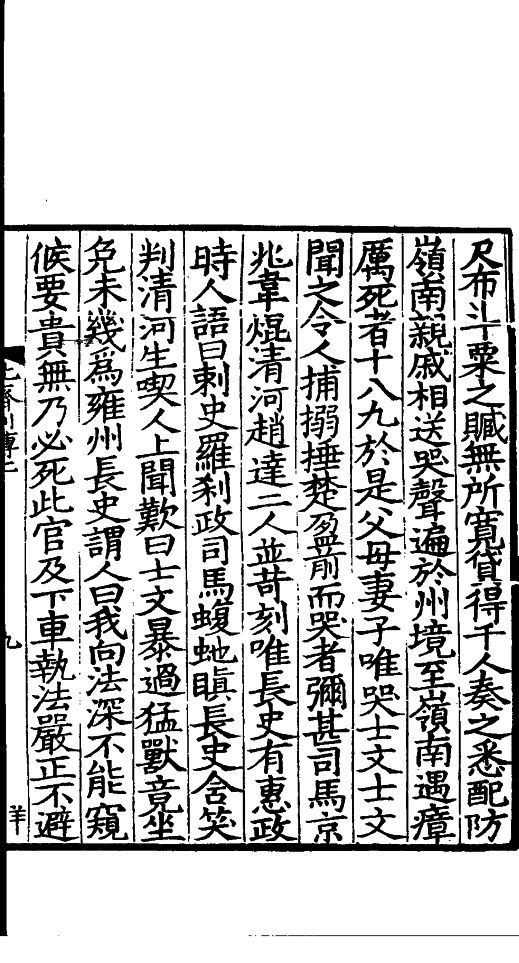 尺布斗粟之贓無所寬貸得千人奏之悉配防
嶺南親戚相送哭聲遍於州境至嶺南遇瘴
厲死者十八九於是父母妻子唯哭士文士文
聞之令人捕搦捶楚盈前而哭者彌甚司馬京
兆韋焜清河趙達二人並苛刻唯長史有惠政
時人語曰刺史羅刹政司馬蝮虵瞋長史含笑
判清河生喫人上聞歎曰士文暴過猛獸竟坐
免未幾爲雍州長史謂人曰我向法深不能窺
候要貴無乃必死此官及下車執法嚴正不避
九
羊